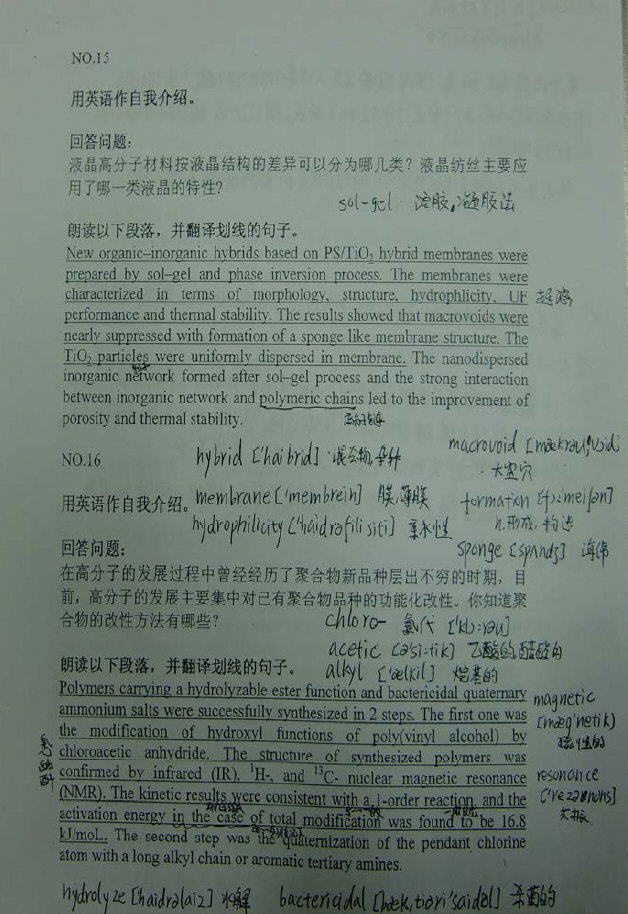 NO.15
用英语作自我介绍。
回答问题:
液晶高分子材料按液晶结构的差异可以分为哪几类?液晶纺丝主要应
用了哪一类液晶的特性?
sol-gel 溶胶,凝胶法
朗读以下段落,并翻译划线的句子。
New organic–inorganic hybrids based on PS/TiO₂ hybrid membranes were
prepared by sol–gel and phase inversion process. The membranes were
characterized in terms of morphology, structure, hydrophlicity, UF 超滤
performance and thermal stability. The results showed that macrovoids were
nearly suppressed with formation of a sponge like membrane structure. The
TiO₂ particles were uniformly dispersed in membrane. The nanodispersed
inorganic network formed after sol–gel process and the strong interaction
between inorganic network and polymeric chains led to the improvement of
porosity and thermal stability.
hybrid ['haibrid] 混合物,杂种
macrovoid
大空穴
NO.16
用英语作自我介绍。
membrane ['membrein] 膜,薄膜
formation [fɔ:'meiʃən]
n.形成,构造
hydrophilicity 亲水性
sponge [spʌndʒ] 海绵
回答问题:
在高分子的发展过程中曾经经历了聚合物新品种层出不穷的时期,目
前,高分子的发展主要集中对已有聚合物品种的功能化改性。你知道聚
合物的改性方法有哪些?
chloro- 氯代 ['klɔ:rəu]
acetic [ə'si:tik] 乙酸的,醋酸的
alkyl ['ælkil] 烷基的
朗读以下段落,并翻译划线的句子。
Polymers carrying a hydrolyzable ester function and bactericidal quaternary
ammonium salts were successfully synthesized in 2 steps. The first one was
the modification of hydroxyl functions of poly(vinyl alcohol) by
chloroacetic anhydride. The structure of synthesized polymers was
confirmed by infrared (IR), ¹H-, and ¹³C- nuclear magnetic resonance
(NMR). The kinetic results were consistent with a 1-order reaction, and the
activation energy in the case of total modification was found to be 16.8
kJ/moL. The second step was the quaternization of the pendant chlorine
atom with a long alkyl chain or aromatic tertiary amines.
magnetic
[mæg'netik]
resonance
共振
hydrolyze [haidrəlaiz] 水解 bactericidal 杀菌的